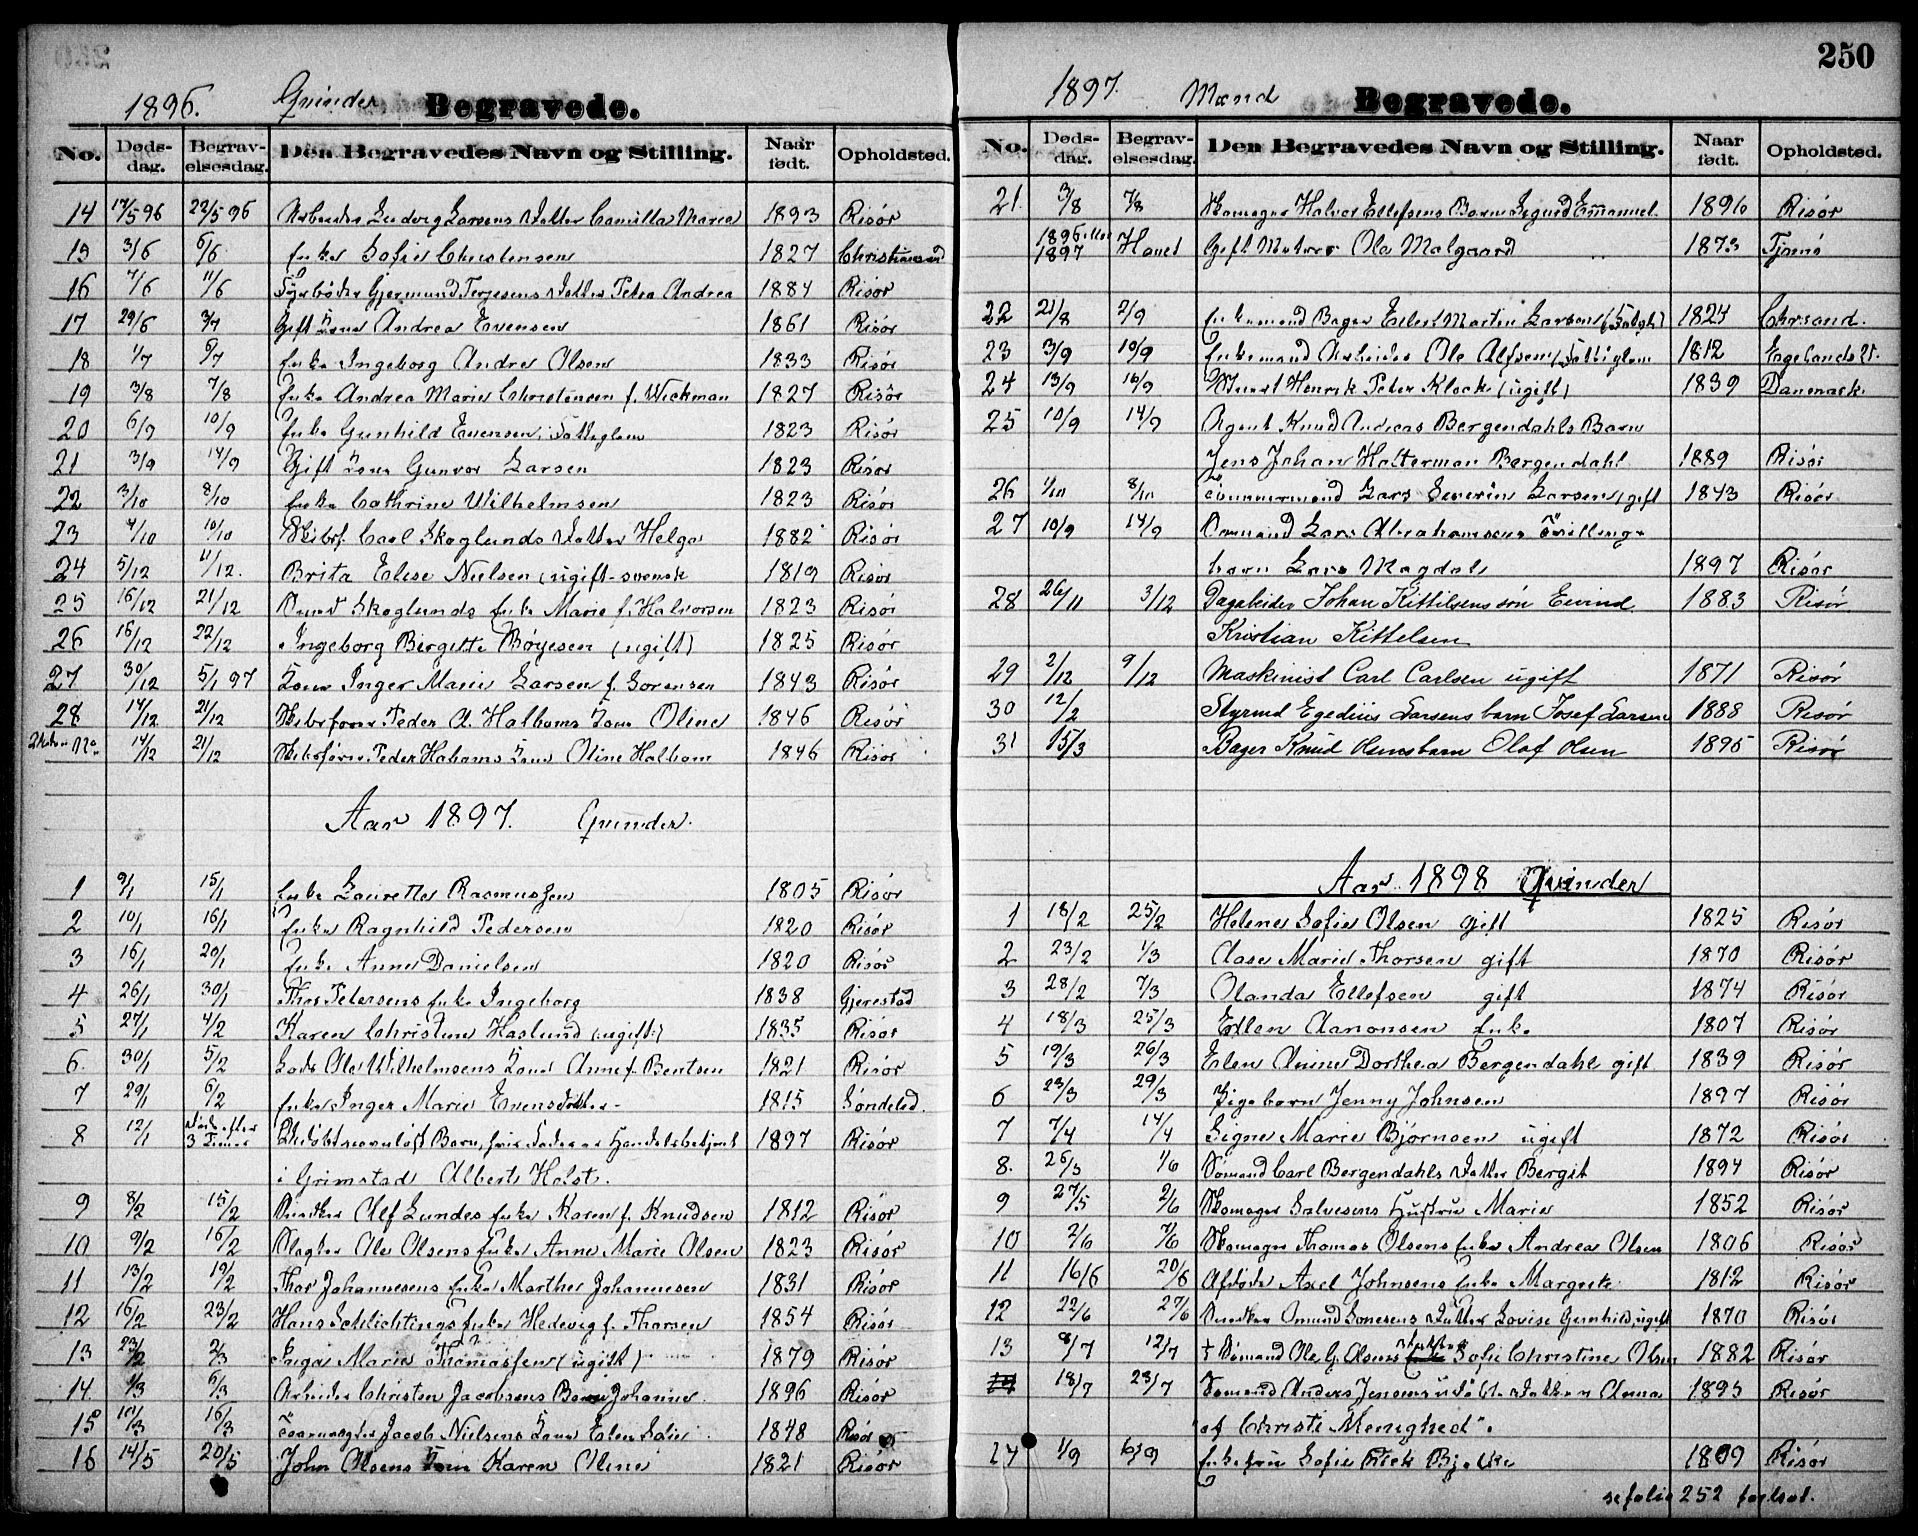 1896. Qvinder Begravede.
No. Døds-dag. Begrav-elsesdag. Den Begravedes Navn og Stilling. Naar født. Opholdsted.
14 17/5 96 22/5 96 Arbeider Ludvig Larsens Datter Camilla Maria 1893 Risør
15 3/6 6/6 Enke Sofie Christensen 1827 Christiansand
16 7/6 11/6 Fyrbøder Gjermund Terjesens Datter Petra Andrea 1884 Risør
17 29/6 3/7 Gift Kone Andrea Evensen 1861 Risør
18 1/7 6/7 Enke Ingeborg Andrea Olsen 1833 Risør
19 3/8 7/8 Enke Andrea Marie Christensen f. Wickman 1827 Risør
20 6/9 10/9 Enke Gunhild Evensen, Fattiglem 1823 Risør
21 3/9 14/9 Gift Kone Gunvor Larsen 1823 Risør
22 3/10 8/10 Enke Cathrine Wilhelmsen 1823 Risør
23 4/10 10/10 Skibsf. Carl Skoglunds Datter Helga 1882 Risør
24 5/12 11/12. Brita Elise Nielsen (ugift - svensk 1819 Risør
25 16/12 21/12 Skoglunds Enke Marie f. Halvorsen 1823 Risør
26 16/12 22/12 Ingeborg Birgitte Bøyesen (ugift) 1825 Risør
27 30/12 5/1 97 Kone Inger Marie Larsen f. Sørensen 1843 Risør
28 14/12 21/12 Skibsfører Peder A. Halboms Kone Oline 1846 Risør
14/12 21/12 Skibsfører Peder Halboms Kone Oline Halbom 1846 Risør
Aar 1897. Qvinder.
1 9/1 15/1 Enke Laurette Rasmussen 1805 Risør
2 10/1 16/1 Enke Ragnhild Pedersen 1820 Risør
3 16/1 20/1 Enke Anne Danielsen 1820 Risør
4 26/1 30/1 Thor Petersens Enke Ingeborg 1838 Gjerestad
5 27/1 4/2 Karen Christine Haslund (ugift) 1835 Risør
6. 30/1 5/2 Lods Ole Wilhelmsens Kone Anne f. Bentsen 1821 Risør
7 29/1 6/2 Enke Inger Marie Evensdatter - 1815 Søndeled.
8 12/1 Døde efter 3 Timer Barn, Fader er Handelsbetjent 1897 Risør
i Grimstad Albert Holst.
9 8/2 15/2 Alf Lundes Enke Karen f. Knudsen 1812 Risør
10 9/2 16/2 Slagter Ole Olsens Enke Anne Marie Olsen 1823 Risør
11 13/2 19/2 Thor Johannesens Enke Marthe Johannesen 1831 Risør
12 16/2 23/2 Hans Schlichtings Enke Hedevig f. Thorsen 1854 Risør
13 23/2 2/3 Inga Marie Thomassen (ugift) 1879 Risør
14. 1/3 6/3 Arbeider Christen Jacobsens Barn Johanne 1896 Risør
15 10/3 16/3 Jacob Nielsens Kone Elen Sofie 1848 Risør
16 14/5 20/5 John Olsens Karen Oline 1821 Risør
250
1897. Mænd Begravede.
No. Døds-dag. Begrav-elsesdag. Den Begravedes Navn og Stilling. Naar født. Opholdsted.
21. 3/8 7/8 Skomager Halvor Ellefsens Barn Sigurd Emanuel. 1896 Risør
1896 1897 Havet Gift Matros Ole Malgaard 1873 Tjømø
22 21/8 2/9 Enkemand Bager Eilert Martin Larsen 1824 Chrsand.
23 3/9 10/9 Enkemand Arbeider Ole Alfsen (Fattiglem 1812
24 13/9 16/9 Henrik Peter Klock (ugift) 1839 Danmark.
25 10/9 14/9 Agent Knud Andreas Bergendahls Barn
Jens Johan Holterman Bergendahl 1889 Risør
26 1/10 8/10 Tømmermand Lars Severin Larsen, gift 1843 Risør
27 10/9 14/9 Lars Abrahamsens Tvilling-
barn Lars Magdals 1897 Risør
28 26/11 3/12 Dagarbeider Johan Kittilsens søn Eivind 1883 Risør.
Kristian Kittelsen
29 2/12 9/12 Maskinist Carl Carlsen ugift 1871 Risør
30 12/2 Styrmd Egedius Larsens barn Josef Larsen 1888 Risør
31 15/3 Bager Knud Olsens barn Olaf Olsen 1895 Risør
Aar 1898 Qvinder
1 18/2 25/2 Helene Sofie Olsen gift 1825 Risør
2 23/2 1/3 Aase Marie Thorsen gift 1870 Risør
3 28/2 7/3 Olanda Ellefsen gift 1874 Risør
4 18/3 25/3 Ellen Aanonsen Enke 1807 Risør
5 19/3 26/3 Elen Anine Dorthea Bergendahl gift 1839 Risør
6 23/3 29/3 Pigebarn Jenny Johnsen 1897 Risør
7 7/4 14/4 Signe Marie Bjørnsen ugift 1872 Risør
8. 26/5 1/6 Sømand Carl Bergendahls Datter Bergit 1894 Risør
9 27/5 2/6 Skomager Salvesens Hustru Marie 1852 Risør
10 2/6 7/6 Skomager Thomas Olsens Enke Andrea Olsen 1806 Risør
11 16/6 20/6 Afdøde Axel Johnsens Enke Margrete 1812 Risør
12 22/6 27/6 Snedker Omund Datter Lovise Gunhild, ugift 1870 Risør
13 8/7 12/7 † Sømand Ole G. Olsens datter Sofie Christine Olsen 1882 Risør
14 18/7 23/7 Sømand Anders Jensens Datter Anna 1895 Risør
"af Christi Menighed".
14 1/9 6/9 Enkefru Sofie Bjelke 1809 Risør
se folio 252 fortsat.